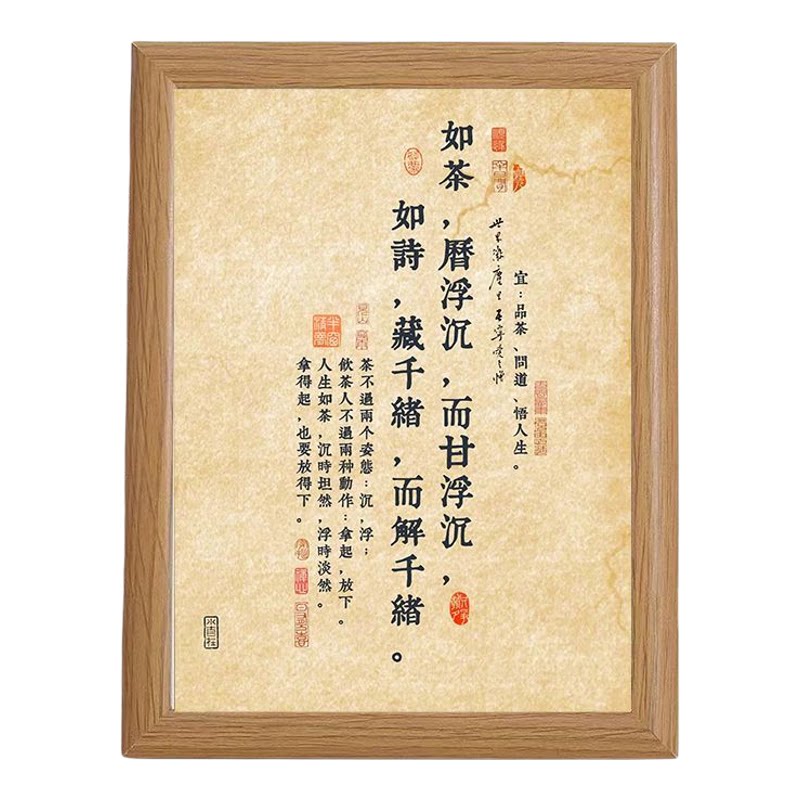 宜：品茶、問道、悟人生。
如茶，曆浮沉，而甘浮沉，
如詩，藏千緒，而解千緒。
茶不過兩个姿態：沉，浮；
飲茶人不過兩种動作：拿起，放下。
人生如茶，沉時坦然，浮時淡然。
拿得起，也要放得下。